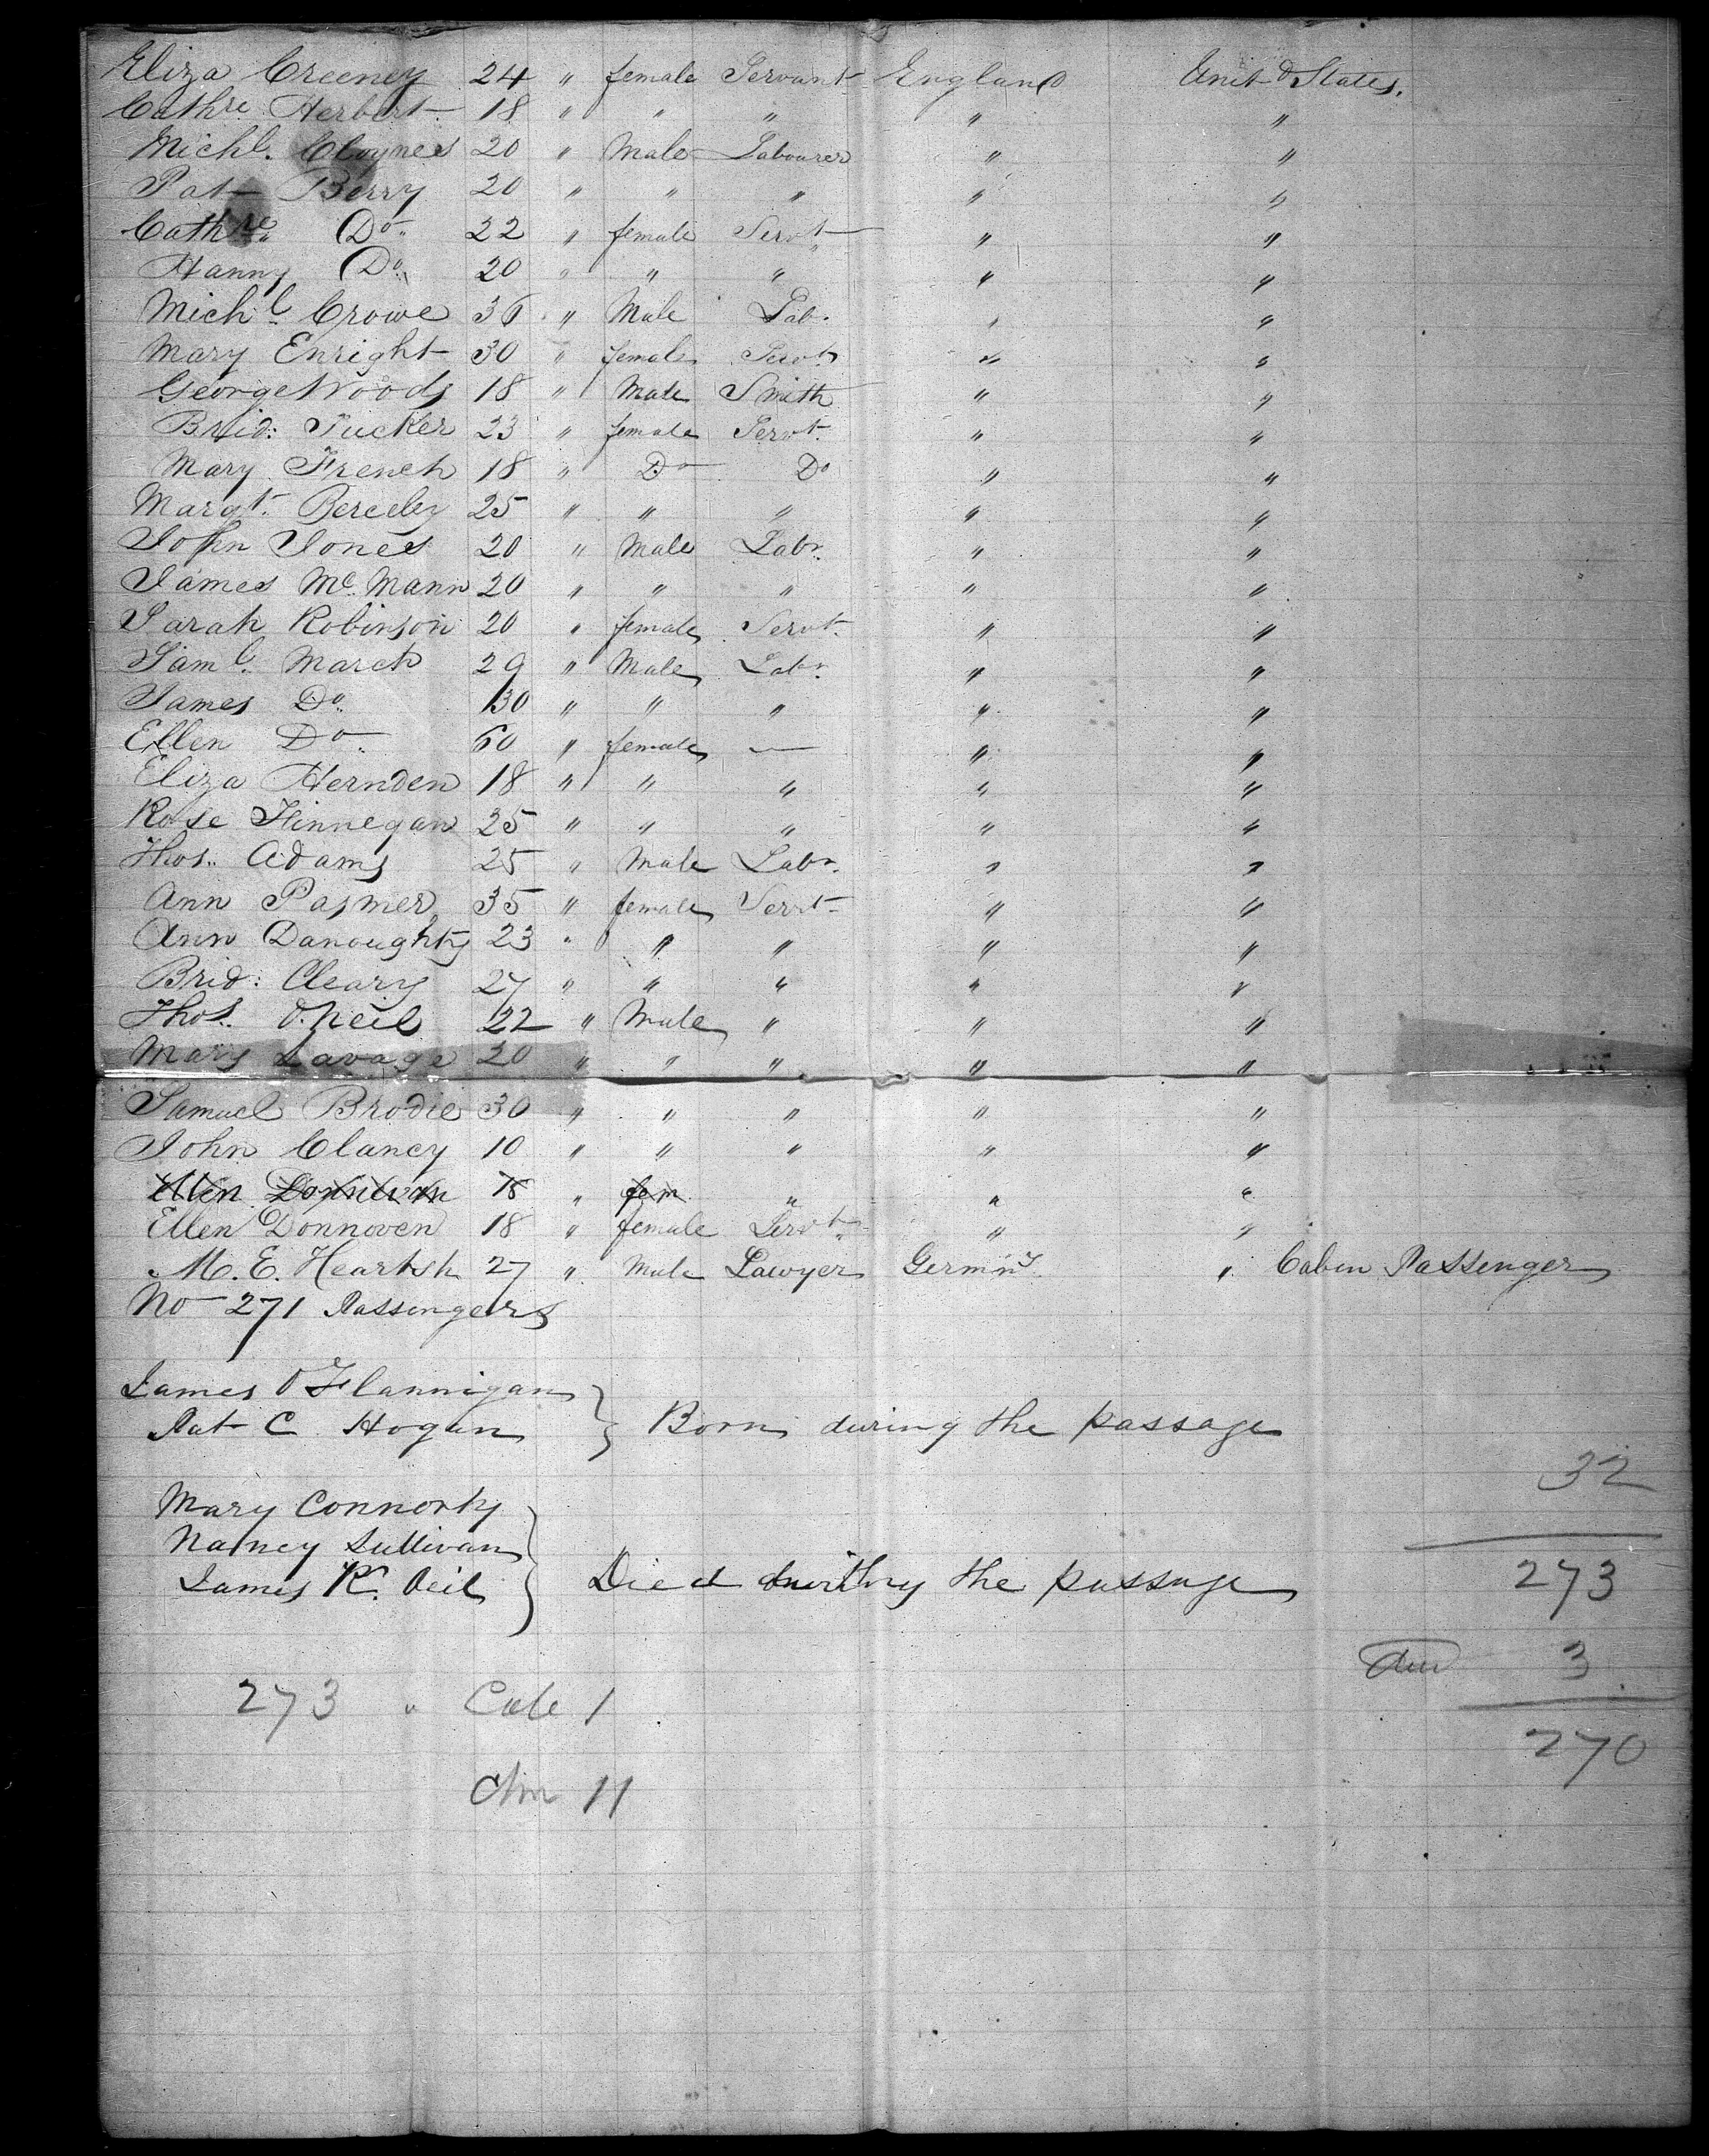 Eliza Creeney 24 " female Servant England Unitd States.
Cathre Herbert 18 " " " " "
Michl. Cloynes 20 " Male Labourer " "
Pat Berry 20 " " " " "
Cathre. Do. 22 " female Servt " "
Hanny Do. 20 " " " " "
Michl. Crowe 36 " Male Lab. " "
Mary Enright 30 " female Servt " "
George Woods 18 " Male Smith " "
Brid: Tucker 23 " female Servt. " "
Mary French 18 " Do Do " "
Margt. 25 " " " " "
John Jones 20 " Male Labr. " "
James Mc.Mann 20 " " " " "
Sarah Robinson 20 " female Servt. " "
Saml. March 29 " Male Labr. " "
James Do. 30 " " " " "
Ellen Do. 60 " female — " "
Eliza Hernden 18 " " " " "
Rose Finnegan 25 " " " " "
Thos.. Adams 25 " Male Labr. " "
Ann Pasmer 35 " female Servt " "
Ann Danoughty 23 " " " " "
Brid: Cleary 27 " " " " "
Thos.. O.Neil 22 " Male " " "
Mary Savage 20 " " " " "
Samuel Brodie 30 " " " " "
John Clancy 10 " " " " "
Ellen Donnevan 18 " fem " " "
Ellen Donnoven 18 " female Servt. " "
M. E. Heartsh 27 " Male Lawyer Germny " Caben Passenger
No 271 Passengers
James O Flannigan
Pat C Hogan } Born during the passage
32
Mary Connorty
Nancy Sullivan
James K. Oeil } Died during the passage
273
3
273 " Cab 1
270
11